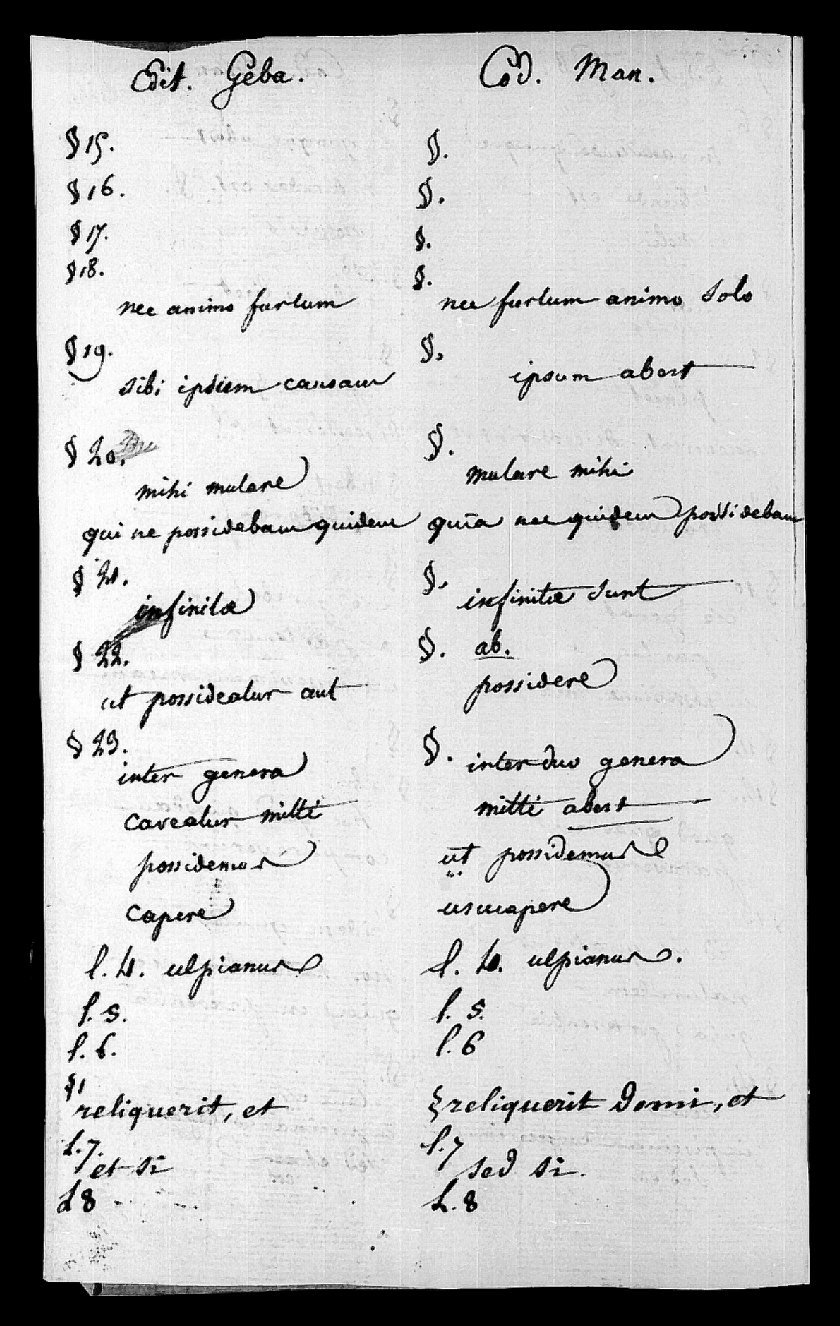 Edit. Geba. Cod. Man.
§ 15. §.
§ 16. §.
§ 17. §.
§ 18. §.
nec animo furtum nec furtum animo solo
§ 19. §.
sibi ipsiem causam ipsum abest
§ 20. §.
mihi mutare mutare mihi
qui ne possidebam quidem quia nec quidem possidebam
§ 21. §.
infinitæ infinitæ sunt
§ 22. §. ab.
ut possideatur aut possidere
§ 23. §.
inter genera inter duo genera
caveatur mitti mitti abest
possidemus ut possidemus
capere usucapere
l. 4. ulpianus l. 4. ulpianus.
l. 5. l. 5.
l. 6. l. 6
§ 1
reliquerit, et § reliquerit domi, et
l. 7. l. 7
et si sed si.
L 8 L. 8